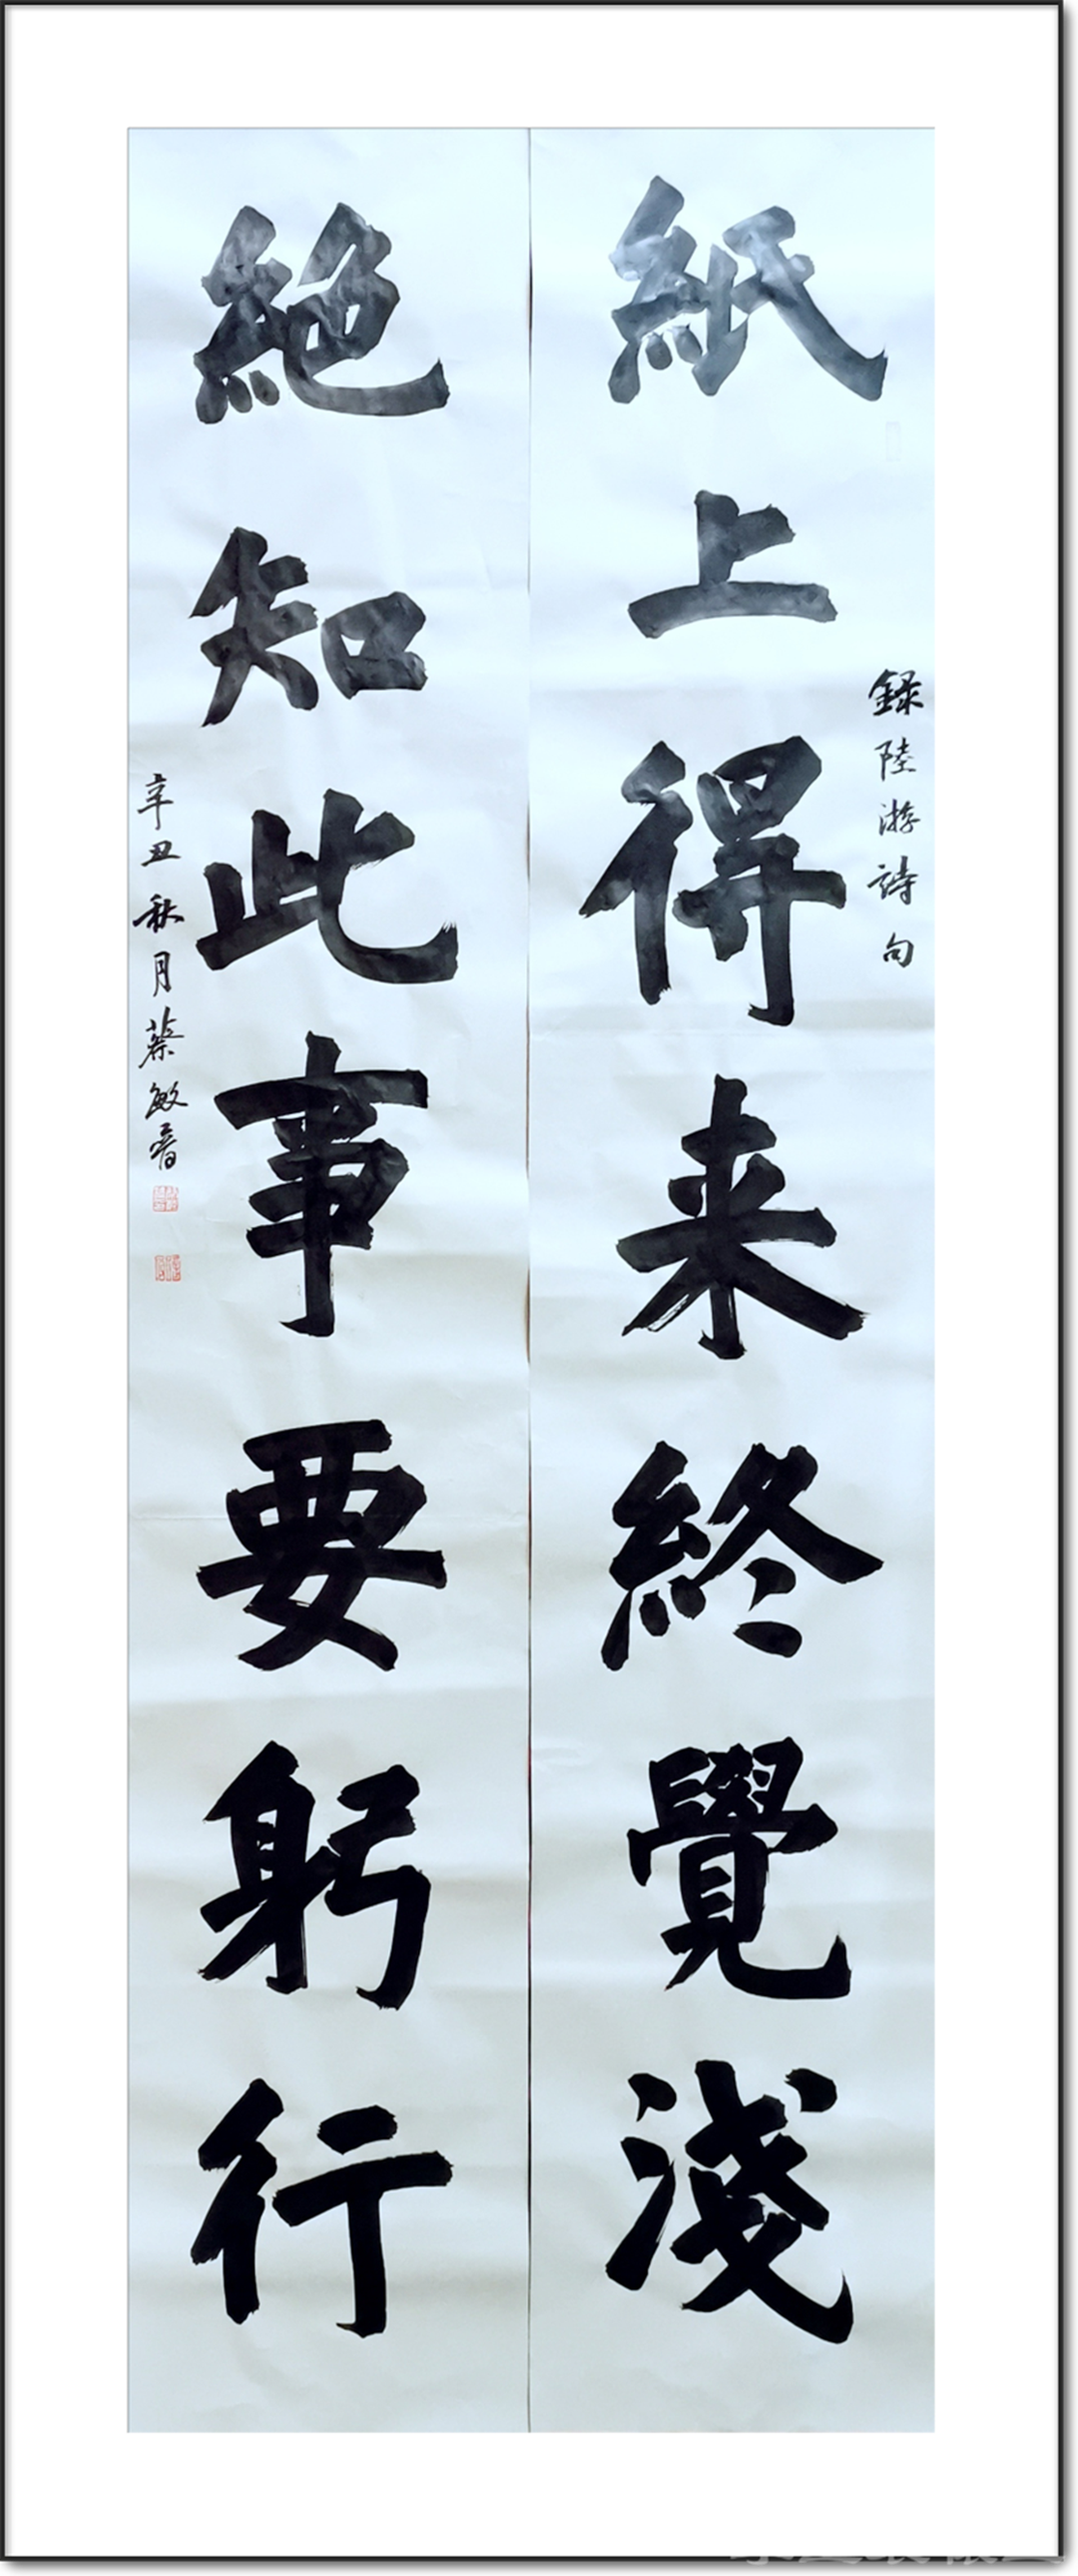 紙上得来終覺淺
録陸游詩句
絶知此事要躬行
辛丑秋月蔡敏書